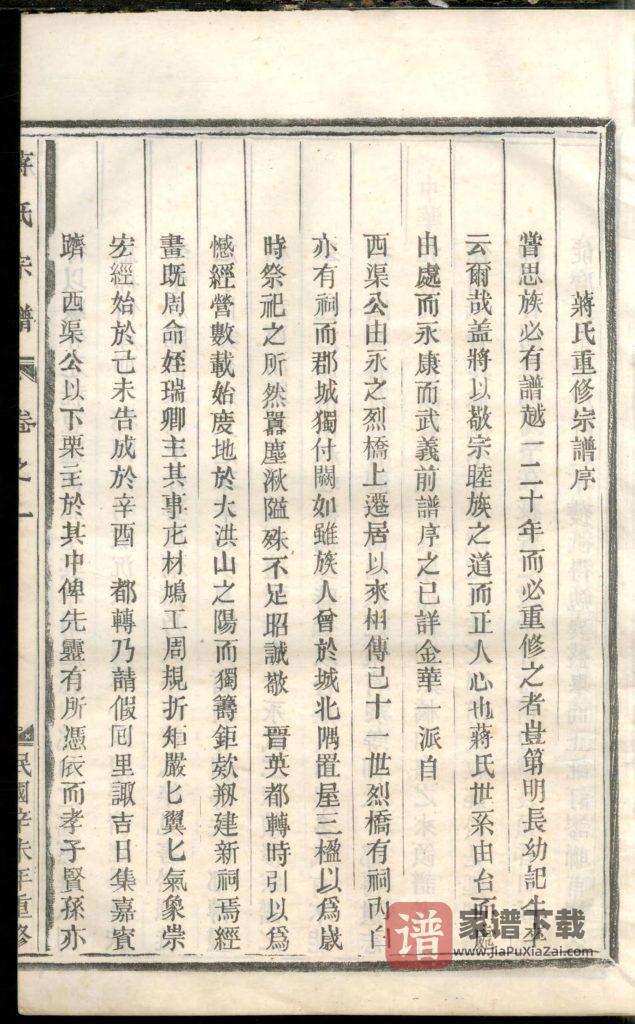 蔣氏重修宗譜序
嘗思族必有譜越一二十年而必重修之者豈第明長幼記生卒
云爾哉盖將以敬宗睦族之道而正人心也蔣氏世系由台而處
由處而永康而武義前譜序之已詳金華一派自
西渠公由永之烈橋上遷居以來相傳已十一世烈橋有祠內白
亦有祠而郡城獨付闕如雖族人曾於城北隅置屋三楹以爲歲
時祭祀之所然囂塵湫隘殊不足昭誠敬 晋英都轉時引以爲
憾經營數載始度地於大洪山之陽而獨籌鉅欵剏建新祠焉經
畫既周命姪瑞卿主其事庀材鳩工周規折矩嚴匕翼匕氣象崇
宏經始於己未告成於辛酉 都轉乃請假囘里諏吉日集嘉賓
躋以西渠公以下栗主於其中俾先靈有所憑依而孝子賢孫亦
蔣氏宗譜 卷之一 民國辛未年重修
谱 家谱下载
www.JiaPuXiaZai.com